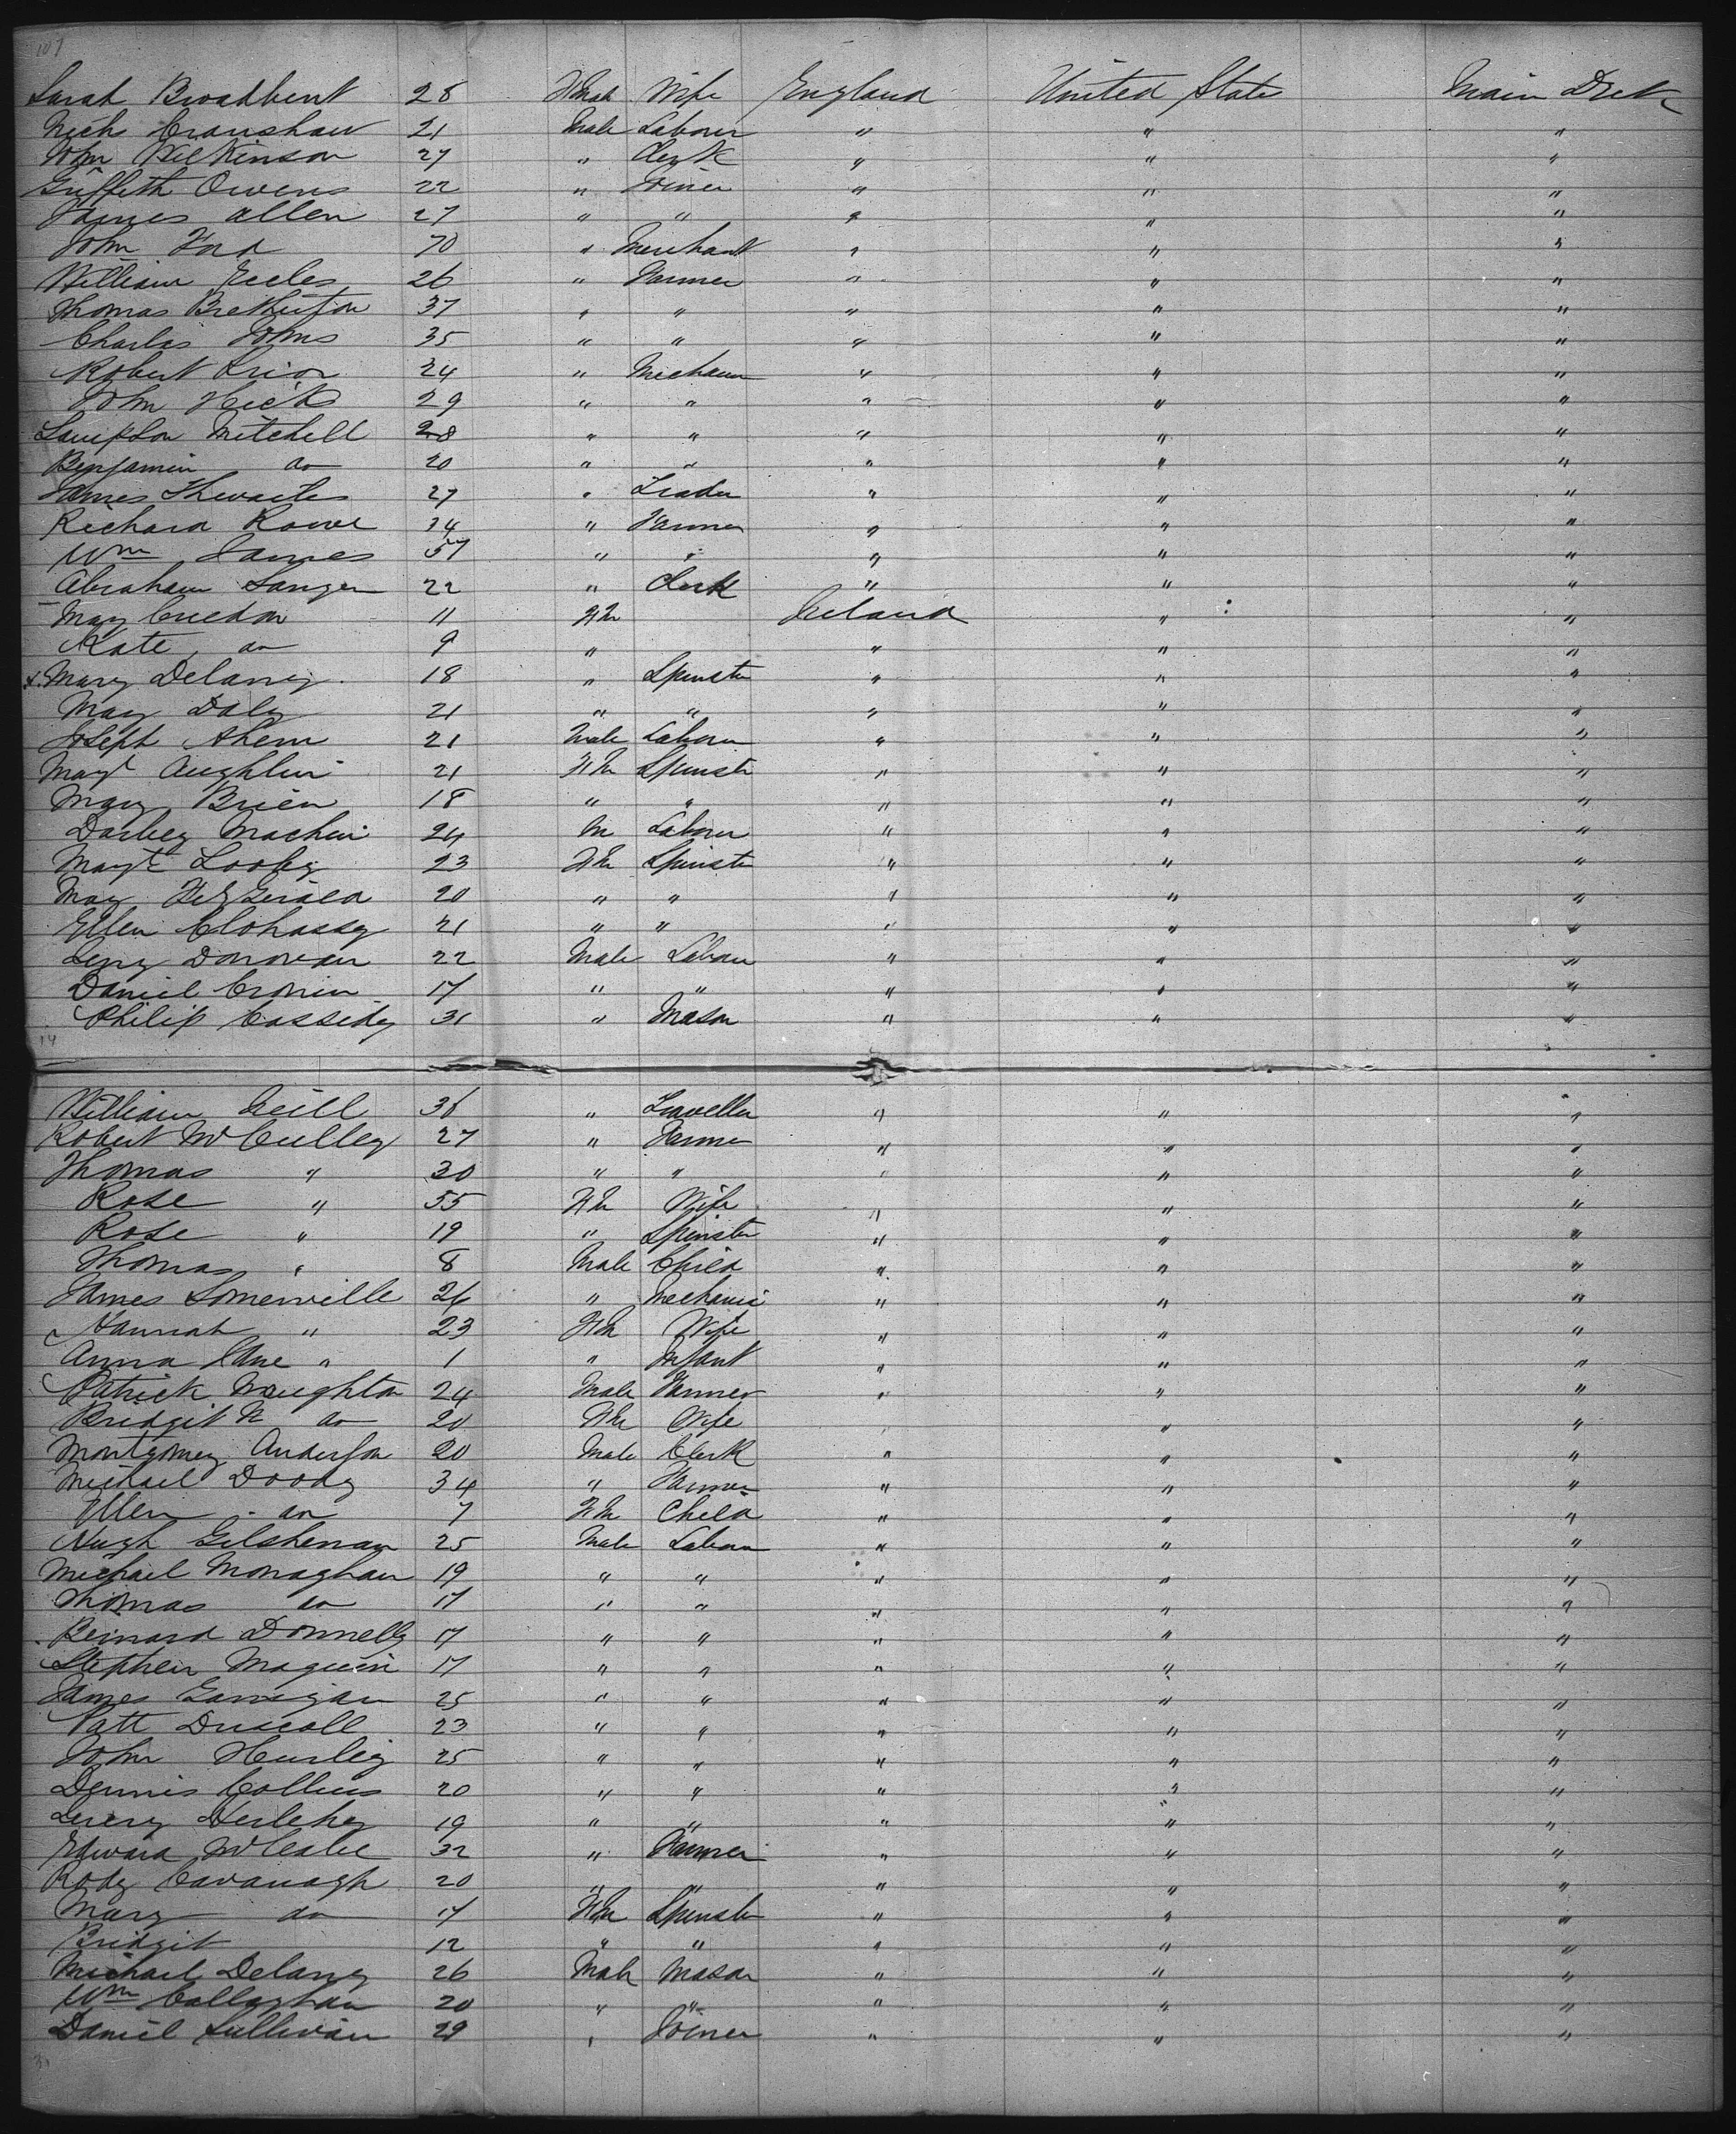 107
Sarah Broadbent 28 FMale Wife England United State Main Deck
Nich Cranshaw 21 Male Laborer " " "
John Wilkinson 27 " Clerk " " "
Griffith Owens 22 " Joiner " " "
James Allen 27 " " " " "
John Ford 70 " Merchant " " "
William Eccles 26 " Farmer " " "
Thomas Bretherton 37 " " " " "
Charles Johns 35 " " " " "
Robert 24 " Mechanic " " "
John Hicks 29 " " " " "
Sampson Mitchell 28 " " " " "
Benjamin do 20 " " " " "
James Thwaites 27 " " " "
Richard Rowe 34 " Farmer " " "
Wm James 57 " " " " "
Abraham Sanger 22 " Clerk " " "
May Creedon 11 FM Ireland " "
Kate do 9 " " " "
x Mary Delaney 18 " Spinster " " "
May Daly 21 " " " " "
Joseph Ahern 21 Male Laborer " " "
Magt Aughlin 21 FM Spinster " " "
Mary Brien 18 " " " " "
Darbey Machin 24 M Laborer " " "
Magt Looby 23 FM Spinster " " "
May FitzGerald 20 " " " " "
Ellen Clohassy 21 " " " " "
Donovan 22 Male Labour " " "
Daniel Cronin 17 " " " " "
Philip Cassidy 31 " Mason " " "
14
William 36 " Traveller " " "
Robert McCulley 27 " Farmer " " "
Thomas " 30 " " " " "
Rose " 55 FM Wife " " "
Rose " 19 " Spinster " " "
Thomas " 8 Male Child " " "
James Somerville 26 " Mechanic " " "
Hannah " 23 FM Wife " " "
Anna Jane " 1 " Infant " " "
Patrick Naughton 24 Male Farmer " " "
Bridgit N do 20 FM Wife " " "
Montgomery Anderson 20 Male Clerk " " "
Michael Doody 34 " Farmer " " "
Ellen do 7 FM Child " " "
Hugh Gilshenan 25 Male Labour " " "
Michael Monaghan 19 " " " " "
Thomas do 17 " " " " "
Bernard Donnelly 17 " " " " "
Stephen Maguin 17 " " " " "
James Garrigan 25 " " " " "
Patt Driscoll 23 " " " " "
John Hurley 25 " " " " "
Dennis Collins 20 " " " " "
19 " " " " "
Edward McCabe 32 " Farmer " " "
Rody Cavanagh 20 " " " " "
Mary do 17 FM Spinster " " "
Bridgit 12 " " " " "
Michael Delany 26 Male Mason " " "
Wm Callaghan 20 " " " " "
Daniel Sullivan 29 " Joiner " " "